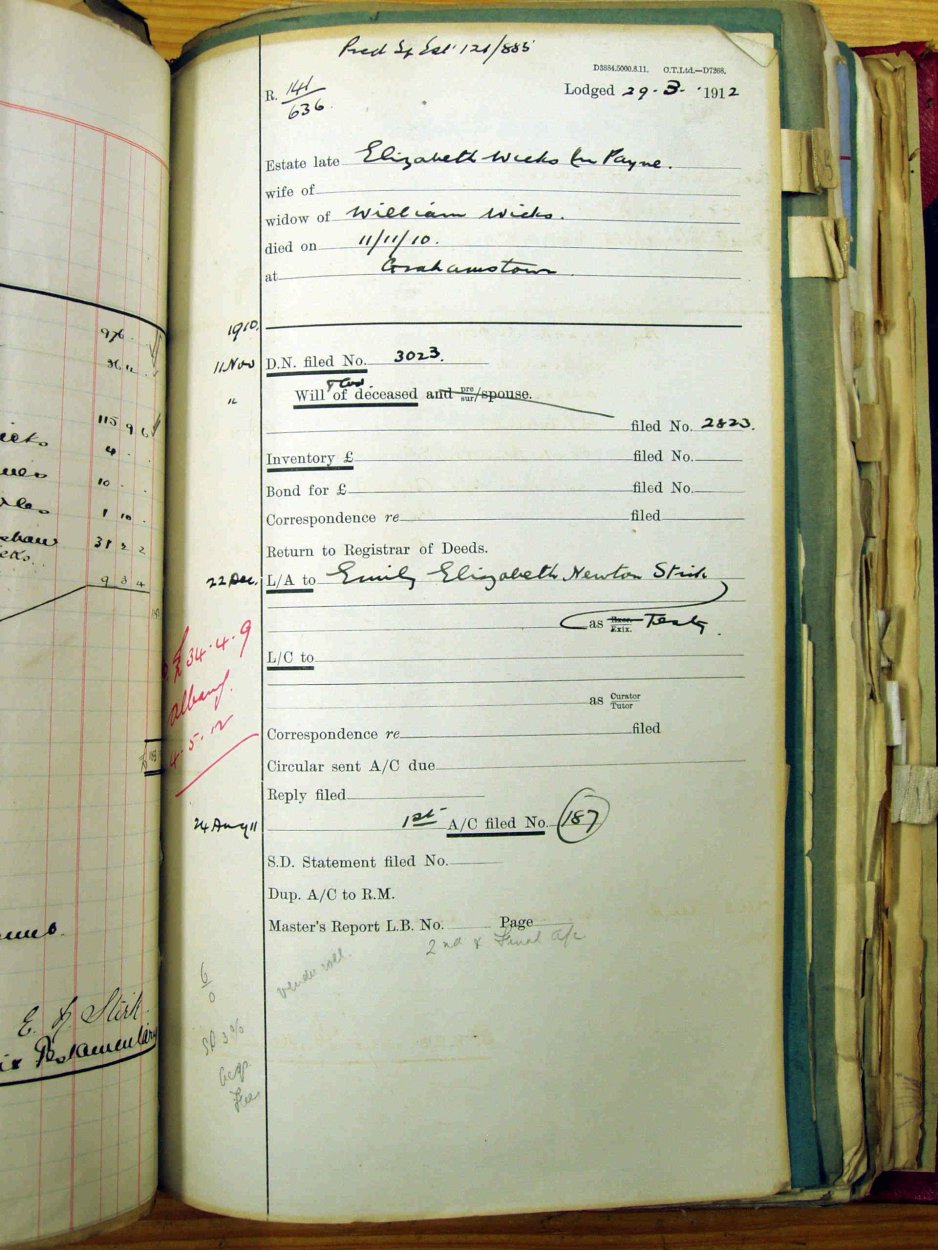 976
36
115 9 6
4
10
1 10
31 2 2
9 3 4
E. Stirk
Testamentary
Pred Sp Est 121/885
D3884.5000.8.11. C.T.Ltd.—D7268.
R. 141/636
Lodged 29-3-1912
Estate late Elizabeth Wicks bn Payne.
wife of
widow of William Wicks.
died on 11/11/10.
at Grahamstown
1910.
11 Nov D.N. filed No. 3023.
" Will of deceased and pre/sur/spouse.
filed No. 2823.
Inventory £ filed No.
Bond for £ filed No.
Correspondence re filed
Return to Registrar of Deeds.
22 Dec. L/A to Emily Elizabeth Newton Stirk
as Exor. Exix. Testy.
£34.4.9
Albany
4.5.12
L/C to
as Curator Tutor
Correspondence re filed
Circular sent A/C due
Reply filed
24 Aug 11 1st A/C filed No. 187
S.D. Statement filed No.
Dup. A/C to R.M.
Master's Report L.B. No. Page
2nd & Final A/c
under will.
6/0
SD 3%
Fee